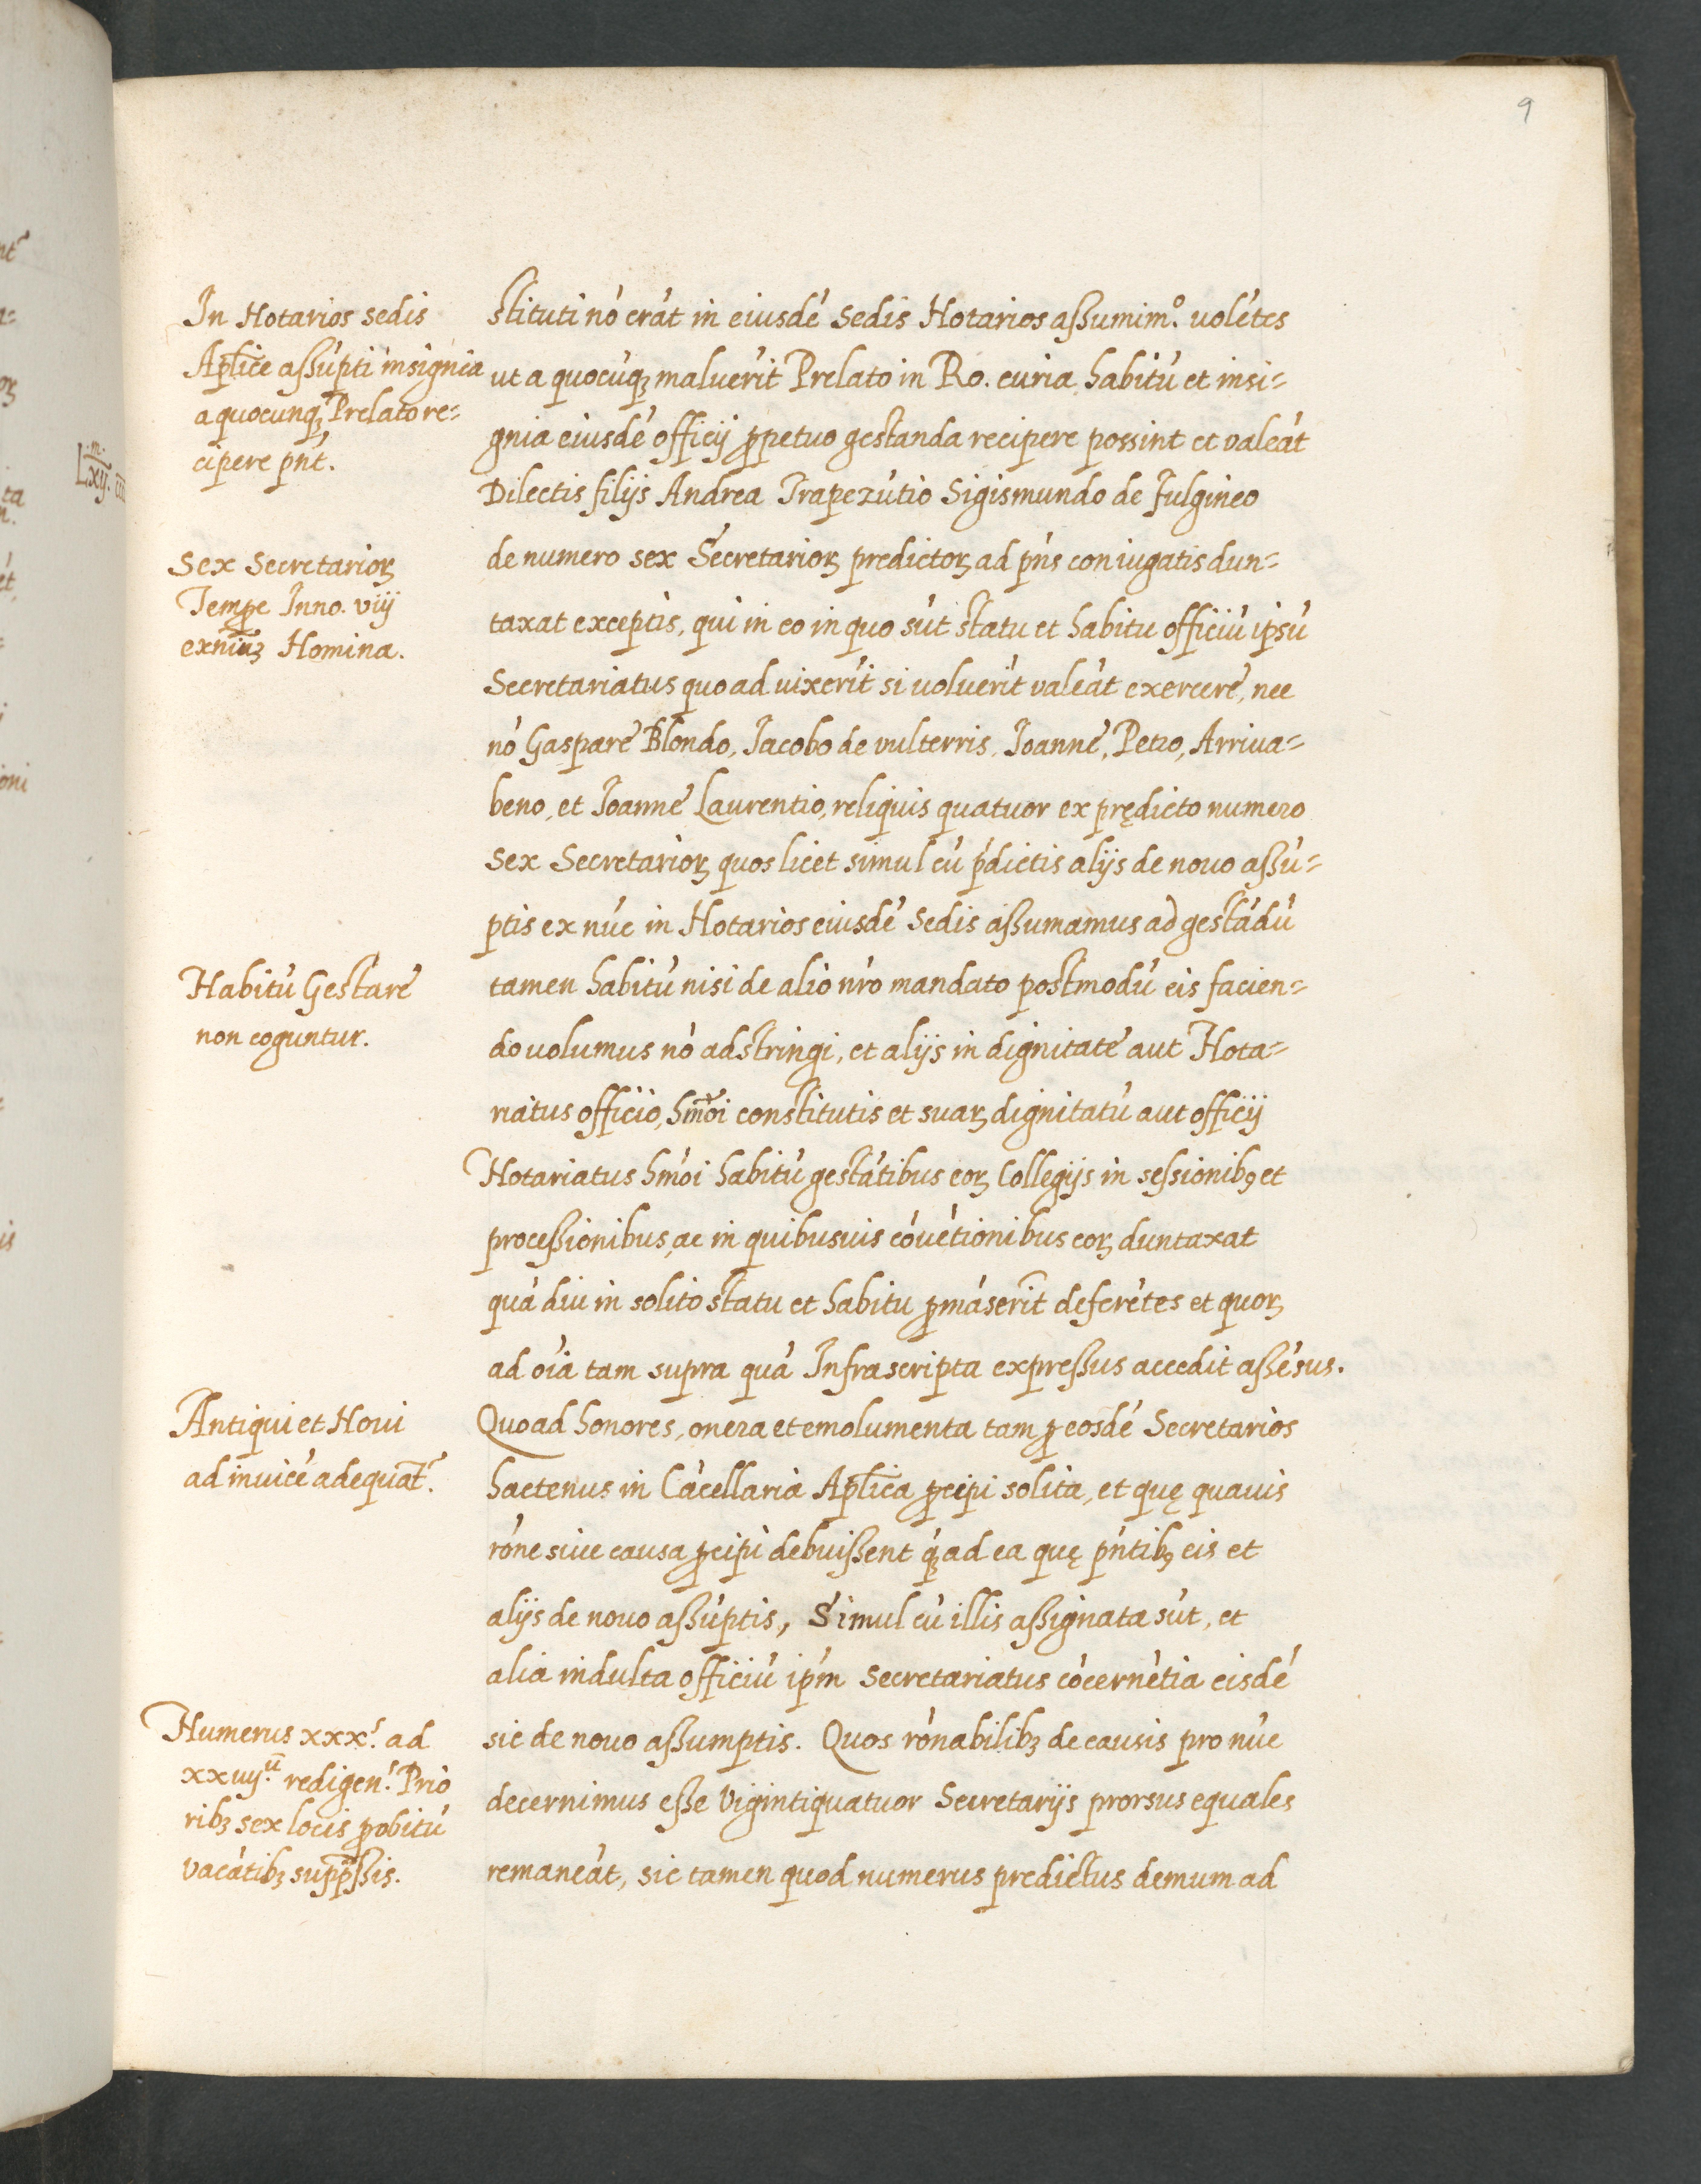 9
In Notarios sedis
Aplice assúpti insignia
a quocunqꝫ Prelato re=
cipere pn̄t.
Sex Secretarioꝝ
Tempe Inno. viij
exn̄iuꝫ Nomina.
Habitú Gestare
non coguntur.
Antiqui et Noui
ad inuicé adequat̃.
Numerus xxx.ˢ ad
xxiiij.ũ redigen.ˢ Prio
ribꝫ sex locis ꝑ obitú
vacátibꝫ supp̃ssis.
stituti nó erát in eiusdé Sedis Notarios assumim⁹. uolétes
ut a quocúqꝫ maluerít Prelato in Ro. curia habitú et insi=
gnia eiusdé officij ꝑpetuo gestanda recipere possint et valeát
Dilectis filijs Andrea Trapezútio Sigismundo de Fulgineo
de numero sex Secretarioꝝ predictoꝝ ad pńs coniugatis dun=
taxat exceptis, qui in eo in quo sút statu et habitu officiú ipsú
Secretariatus quo ad uixerít si uoluerít valeát exercere, nec
nó Gaspare Blondo, Jacobo de vulterris, Joanne, Petro, Arriua=
beno, et Joanne Laurentio, reliquis quatuor ex prędicto numero
Sex Secretarioꝝ quos licet simul cú ṕdictis alijs de nouo assú=
ptis ex núc in Notarios eiusdé Sedis assumamus ad gestádú
tamen habitú nisi de alio nŕo mandato postmodú eis facien=
do uolumus nó adstringi, et alijs in dignitate aut Nota=
riatus officio, hm̃oi constitutis et suaꝝ dignitatú aut officij
Notariatus hmói habitú gestátibus eoꝝ Collegijs in sessionibꝯ et
processionibus, ac in quibusuis cóuétionibus eoꝝ duntaxat
quá diu in solito statu et habitu ꝑmáserit̃ deferétes et quoꝝ
ad oía tam supra quá Infrascripta expressus accedit assésus.
Quoad honores, onera et emolumenta tam ꝑ eosdé Secretarios
hactenus in Cácellaria Aplica ꝑcipi solita, et quę quauis
róne siue causa ꝑcipi debuissent q́ꝫ ad ea quę pńtibꝯ eis et
alijs de nouo assúptis, Simul cú illis assignata sút, et
alia indulta officiú ipḿ Secretariatus cócernétia eisdé
sic de nouo assumptis. Quos rónabilibꝫ de causis pro núc
decernimus esse Vigintiquatuor Secretarijs prorsus equales
remaneát, sic tamen quod numerus predictus demum ad